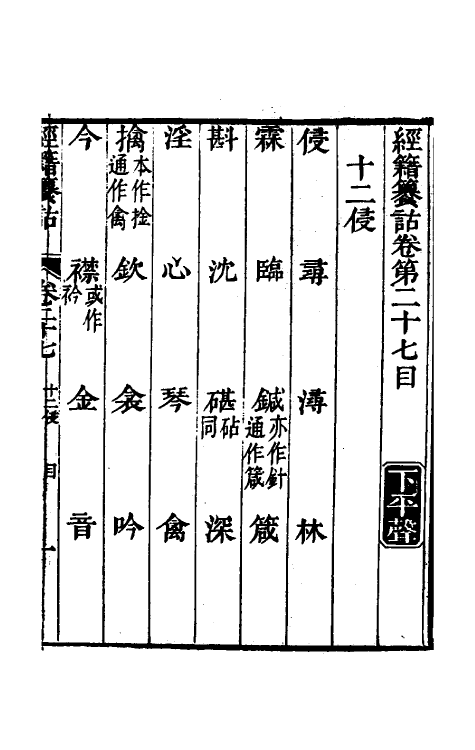 經籍籑詁卷第二十七目 下平聲
十二侵
侵 尋 潯 林
霖 臨 鍼亦作針通作箴 箴
斟 沈 碪砧同 深
淫 心 琴 禽
擒本作捦通作禽 欽 衾 吟
今 襟或作衿 金 音
經籍籑詁 卷二十七 十二侵 目 一